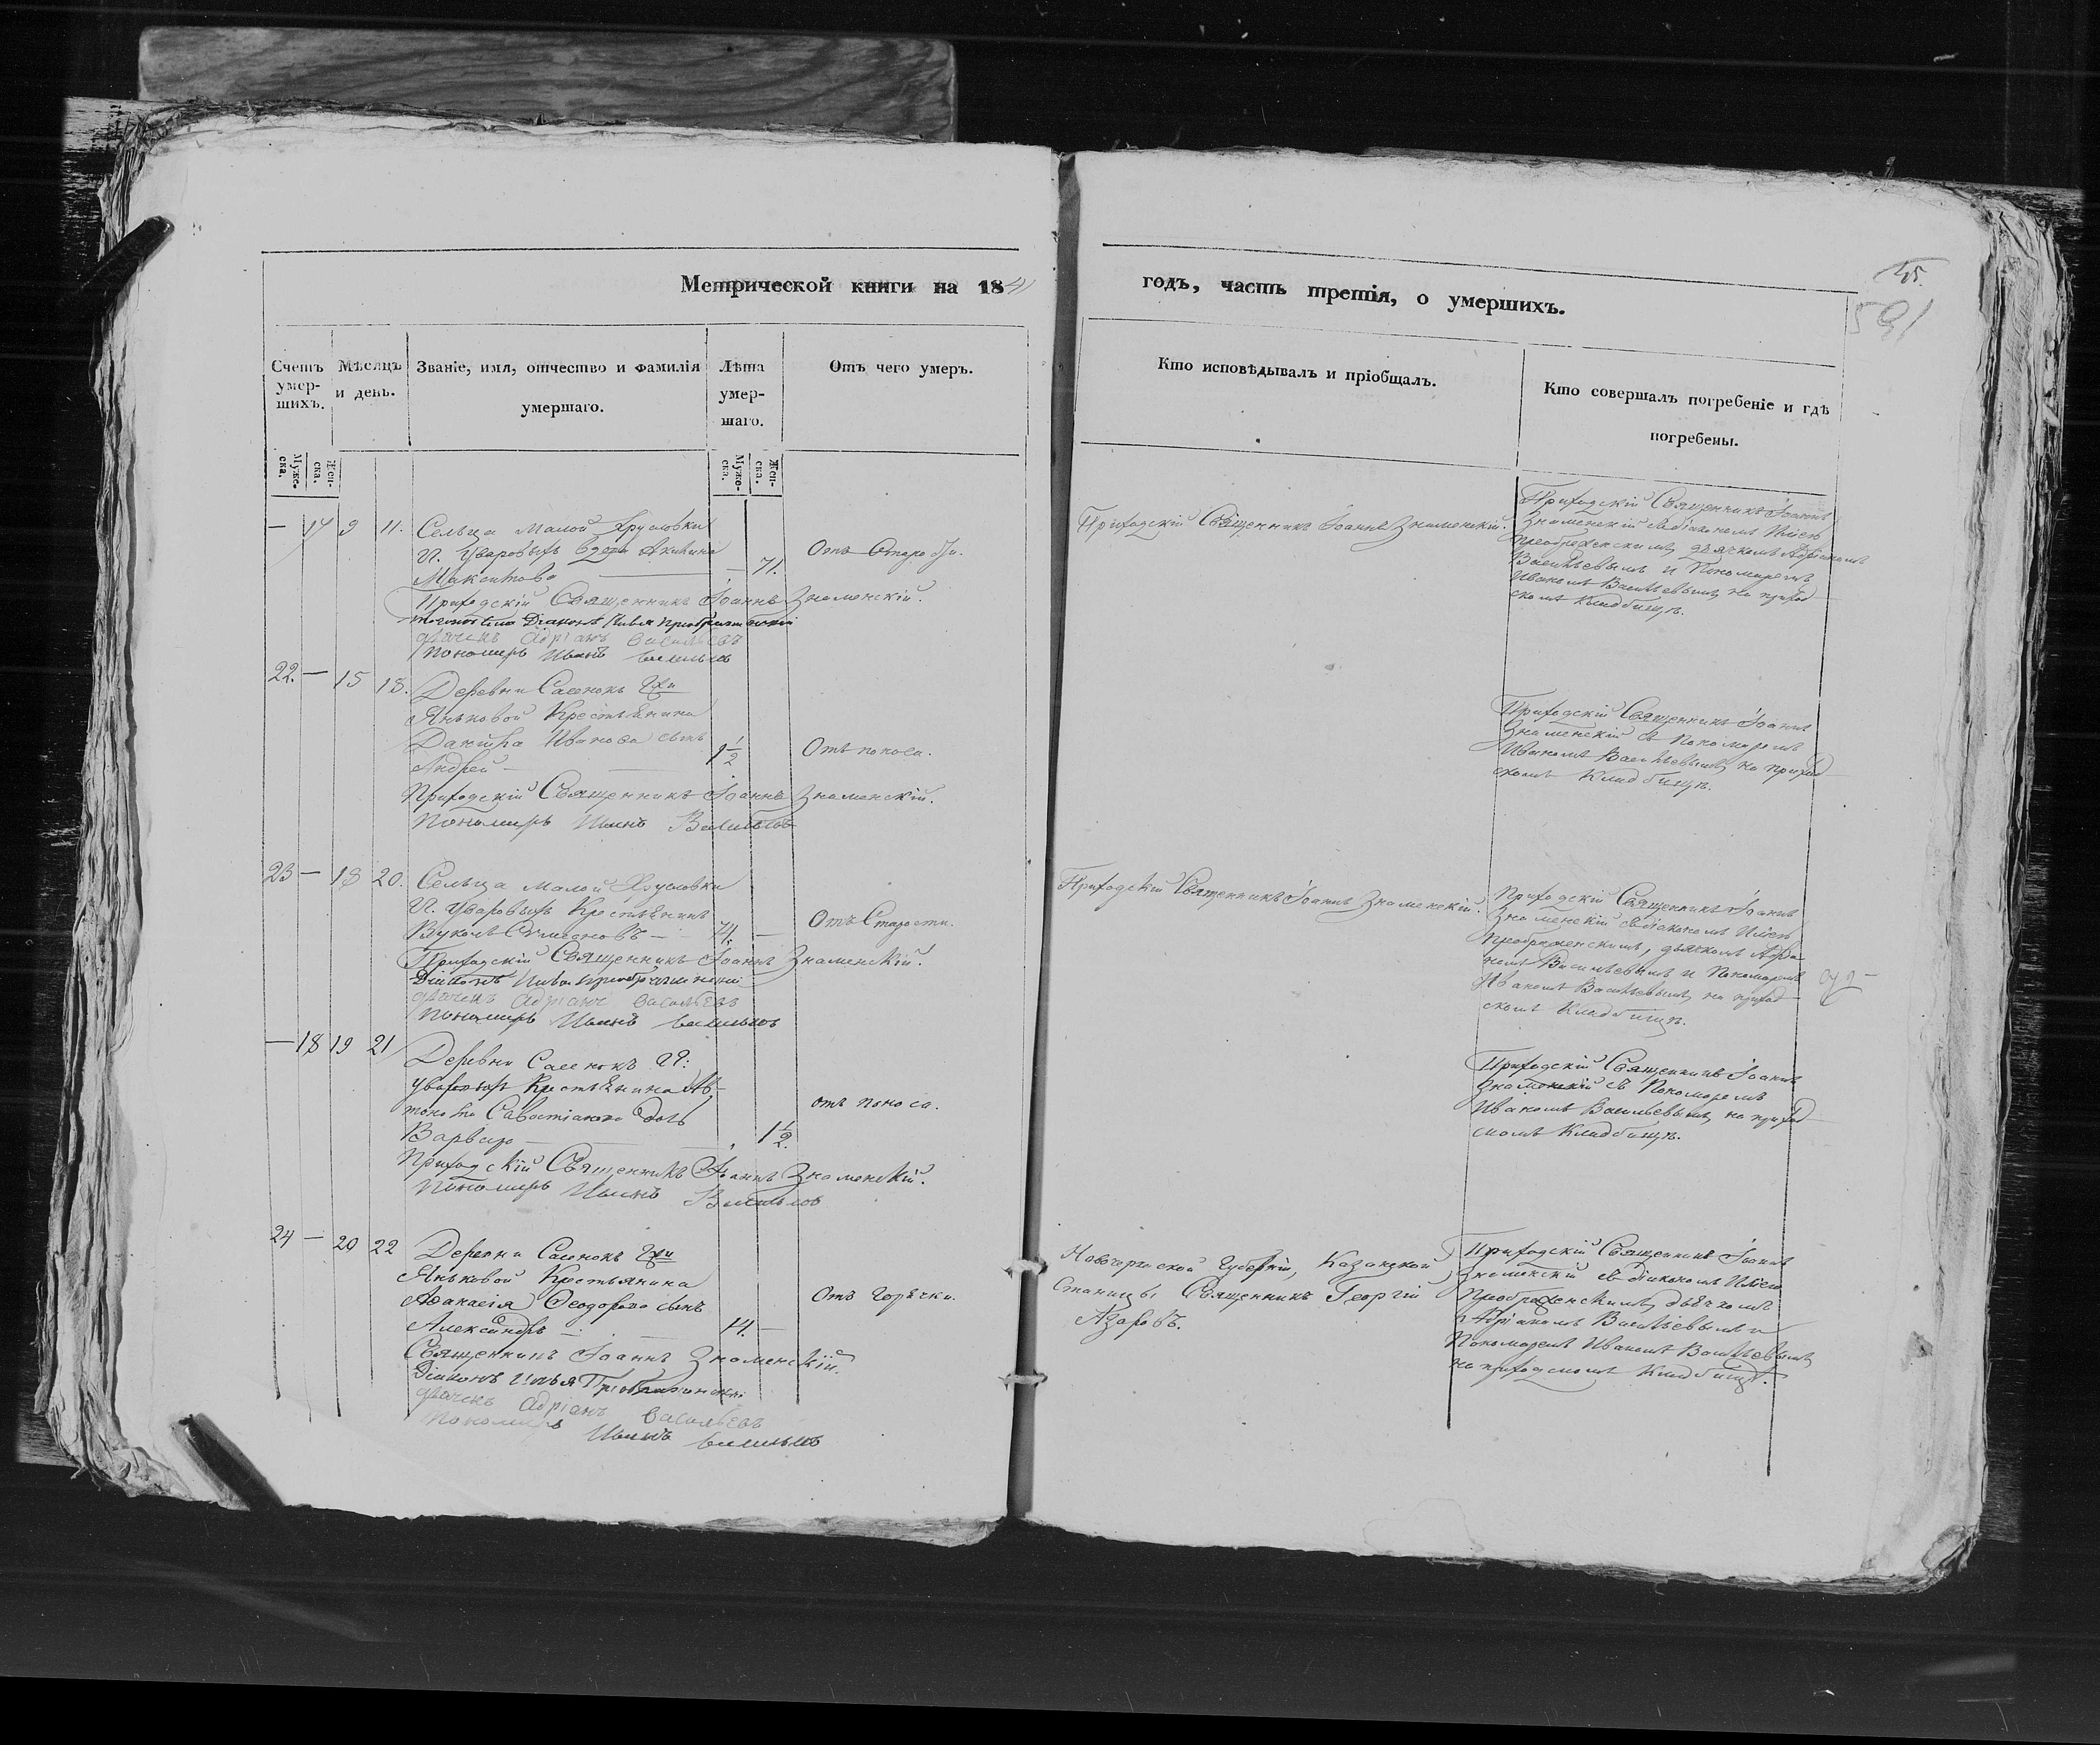 Метрической книги на 1841
Счетъ умер-шихъ.
Мѣсяцъ и день.
Званіе, имя, отчество и фамилія
умершаго.
Лѣта умер-шаго.
Отъ чего умеръ.
Муже-ска. Жен-ска.
Муже-ска. Жен-ска.
— 17 9 11. Сельца Малой Хрусловки
Гг. Уваровыхъ вдова Акилина
Максимова — 71. Отъ Старости.
Приходскій Священникъ Іоаннъ Знаменскій.
Діаконъ Илья Преображенскій
дьячекъ Адріанъ Васильевъ
Пономарь Иванъ Васильевъ
22. — 15 18. Деревни Сасенокъ Гжи
Яньковой Крестьянина
Данила Иванова сынъ
Андрей — 1 1/2 Отъ поноса.
Приходскій Священникъ Іоаннъ Знаменскій.
Пономарь Иванъ Васильевъ
23 — 18 20. Сельца Малой Хрусловки
Гг. Уваровыхъ Крестьянинъ
Вуколъ Симеоновъ — 74. — Отъ Старости.
Приходскій Священникъ Іоаннъ Знаменскій.
Діаконъ Илья Преображенскій
дьячекъ Адріанъ Васильевъ
Пономарь Иванъ Васильевъ
— 18 19 21 Деревни Сасенокъ Гг.
Уваровыхъ Крестьянина Ав-
тонома Савостіанова дочь
Варвара — 1 1/2. отъ поноса.
Приходскій Священникъ Іоаннъ Знаменскій.
Пономарь Иванъ Васильевъ
24 — 20 22 Деревни Сасенокъ Гжи
Яньковой Крестьянина
Аѳанасія Ѳеодорова сынъ
Александръ — 14. — Отъ Горячки.
Священникъ Іоаннъ Знаменскій.
Діаконъ Илья Преображенскій
дьячекъ Адріанъ Васильевъ
Пономарь Иванъ Васильевъ
годъ, часть третія, о умершихъ.
45.
591
Кто исповѣдывалъ и пріобщалъ.
Кто совершалъ погребеніе и гдѣ
погребены.
Приходскій Священникъ Іоаннъ Знаменскій.
Приходскій Священникъ Іоаннъ
Знаменскій съ діакономъ Ильею
Преображенскимъ, дьячкомъ Адріаномъ
Васильевымъ и Пономаремъ
Иваномъ Васильевымъ, на приход-
скомъ Кладбищѣ.
Приходскій Священникъ Іоаннъ
Знаменскій съ Пономаремъ
Иваномъ Васильевымъ, на приход-
скомъ Кладбищѣ.
Приходскій Священникъ Іоаннъ Знаменскій.
Приходскій Священникъ Іоаннъ
Знаменскій съ діакономъ Ильею
Преображенскимъ, дьячкомъ Адріа-
номъ Васильевымъ и Пономаремъ
Иваномъ Васильевымъ, на приход-
скомъ Кладбищѣ.
Приходскій Священникъ Іоаннъ
Знаменскій съ Пономаремъ
Иваномъ Васильевымъ, на приход-
скомъ Кладбищѣ.
Новочеркаской Губерніи, Казанской
Станицы Священникъ Георгій
Азаровъ.
Приходскій Священникъ Іоаннъ
Знаменскій съ діакономъ Ильею
Преображенскимъ, дьячкомъ
Адріаномъ Васильевымъ и
Пономаремъ Иваномъ Васильевымъ
на приходскомъ Кладбищѣ.